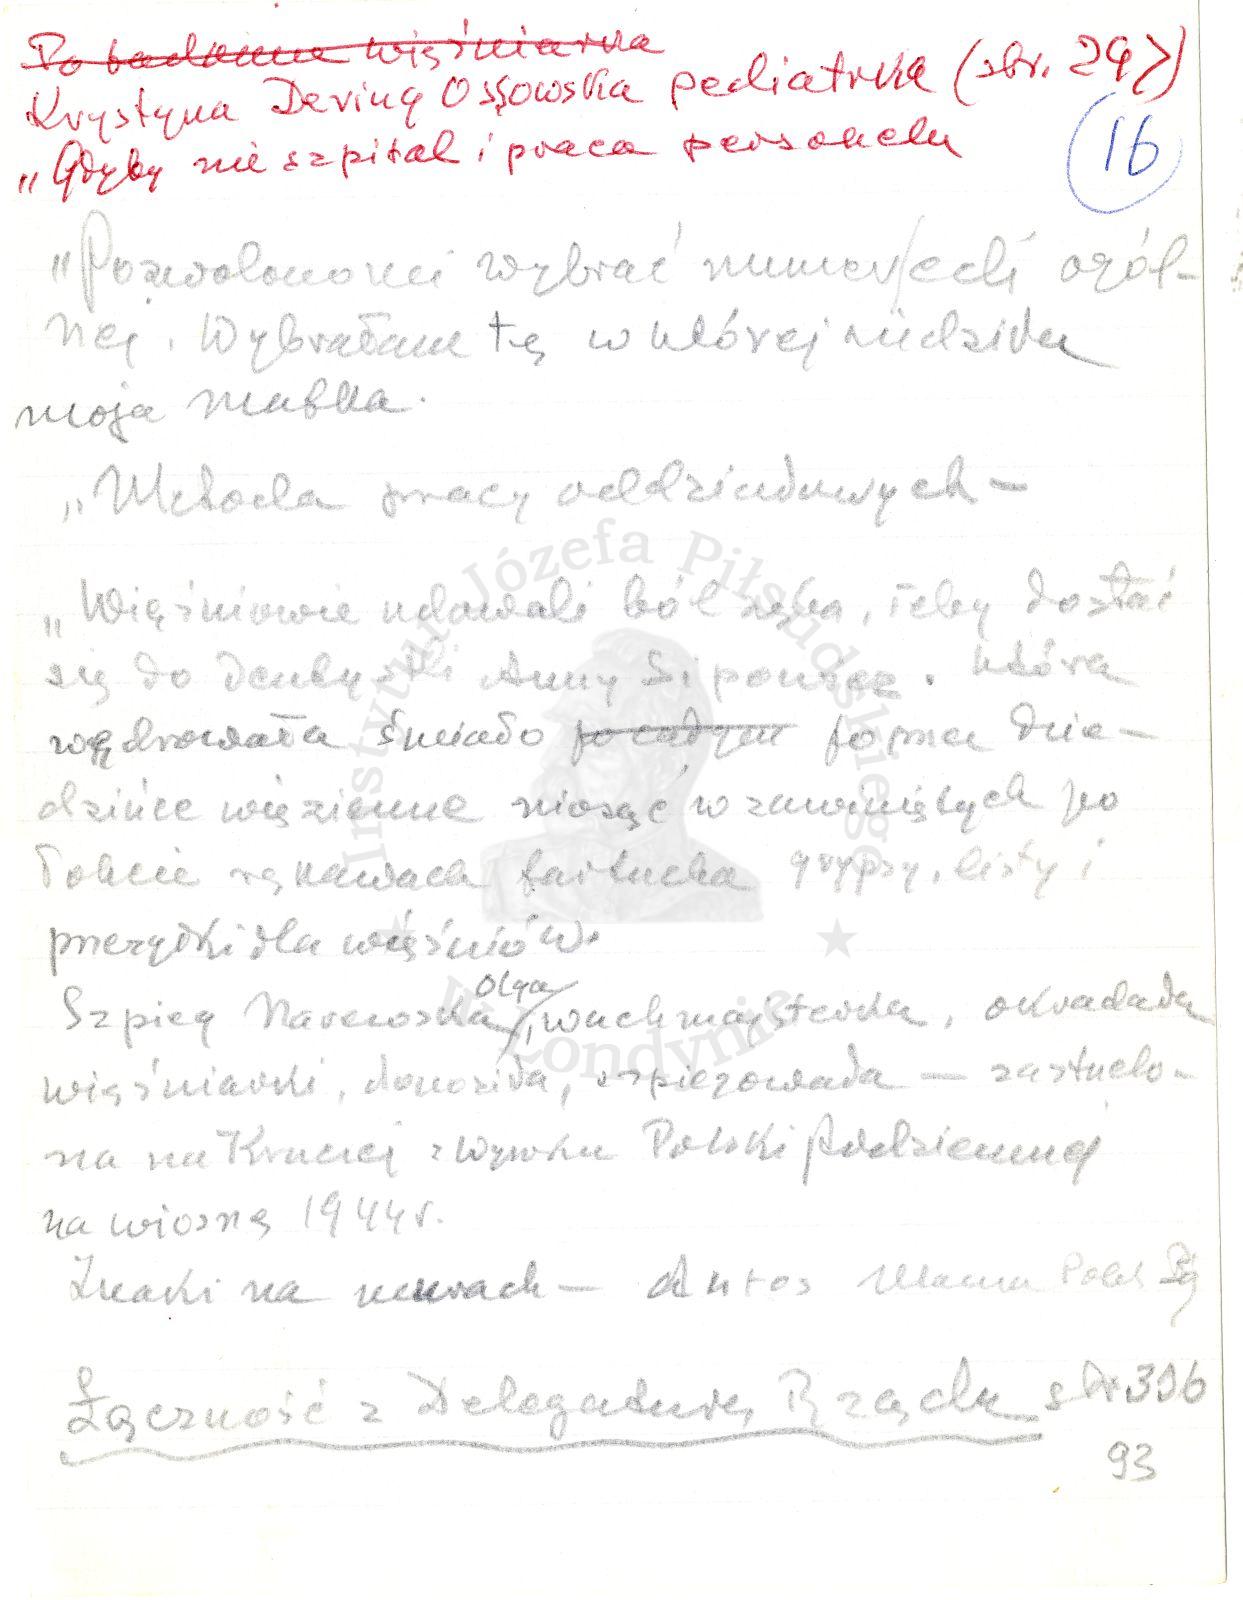 Po badaniu więźniarka
Krystyna Dering Ossowska pediatrka (str. 297)
„Gdyby nie szpital i praca personelu
16
„Pozwolono mi wybrać numer celi ogól-
nej. Wybrałam tę w której siedziała
moja matka.
„Metoda pracy oddziałowych –
„Więźniowie udawali ból zęba, żeby dostać
się do dentystki Anny Sipowicz. która
wędrowała śmiało po całym poprzez dzie-
dzińce więzienne niosąc w zawiniętych po
łokcie rękawach fartucha grypsy, listy i
przesyłki dla więźniów.
Szpieg Narewska Olga, wachmajsterka, okradała
więźniarki, donosiła, szpiegowała – zastrzelo-
na na Kruczej z wyroku Polski Podziemnej
na wiosnę 1944 r.
Znaki na murach – Antos Mama
Łączność z Delegaturą Rządu str 396
93
Instytut Józefa Piłsudskiego
w Londynie